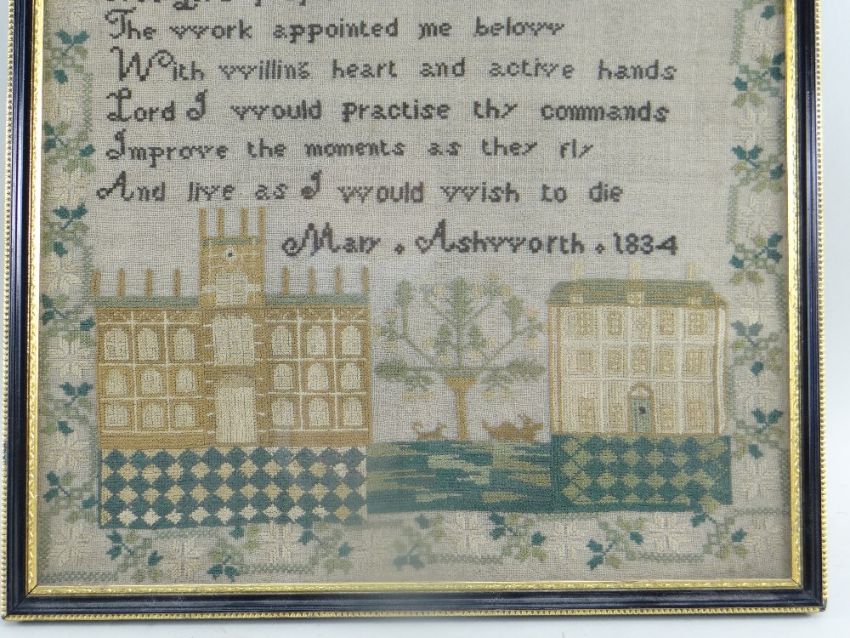 The work appointed me below
With willing heart and active hands
Lord I would practise thy commands
Improve the moments as they fly
And live as I would wish to die
Mary . Ashworth . 1834